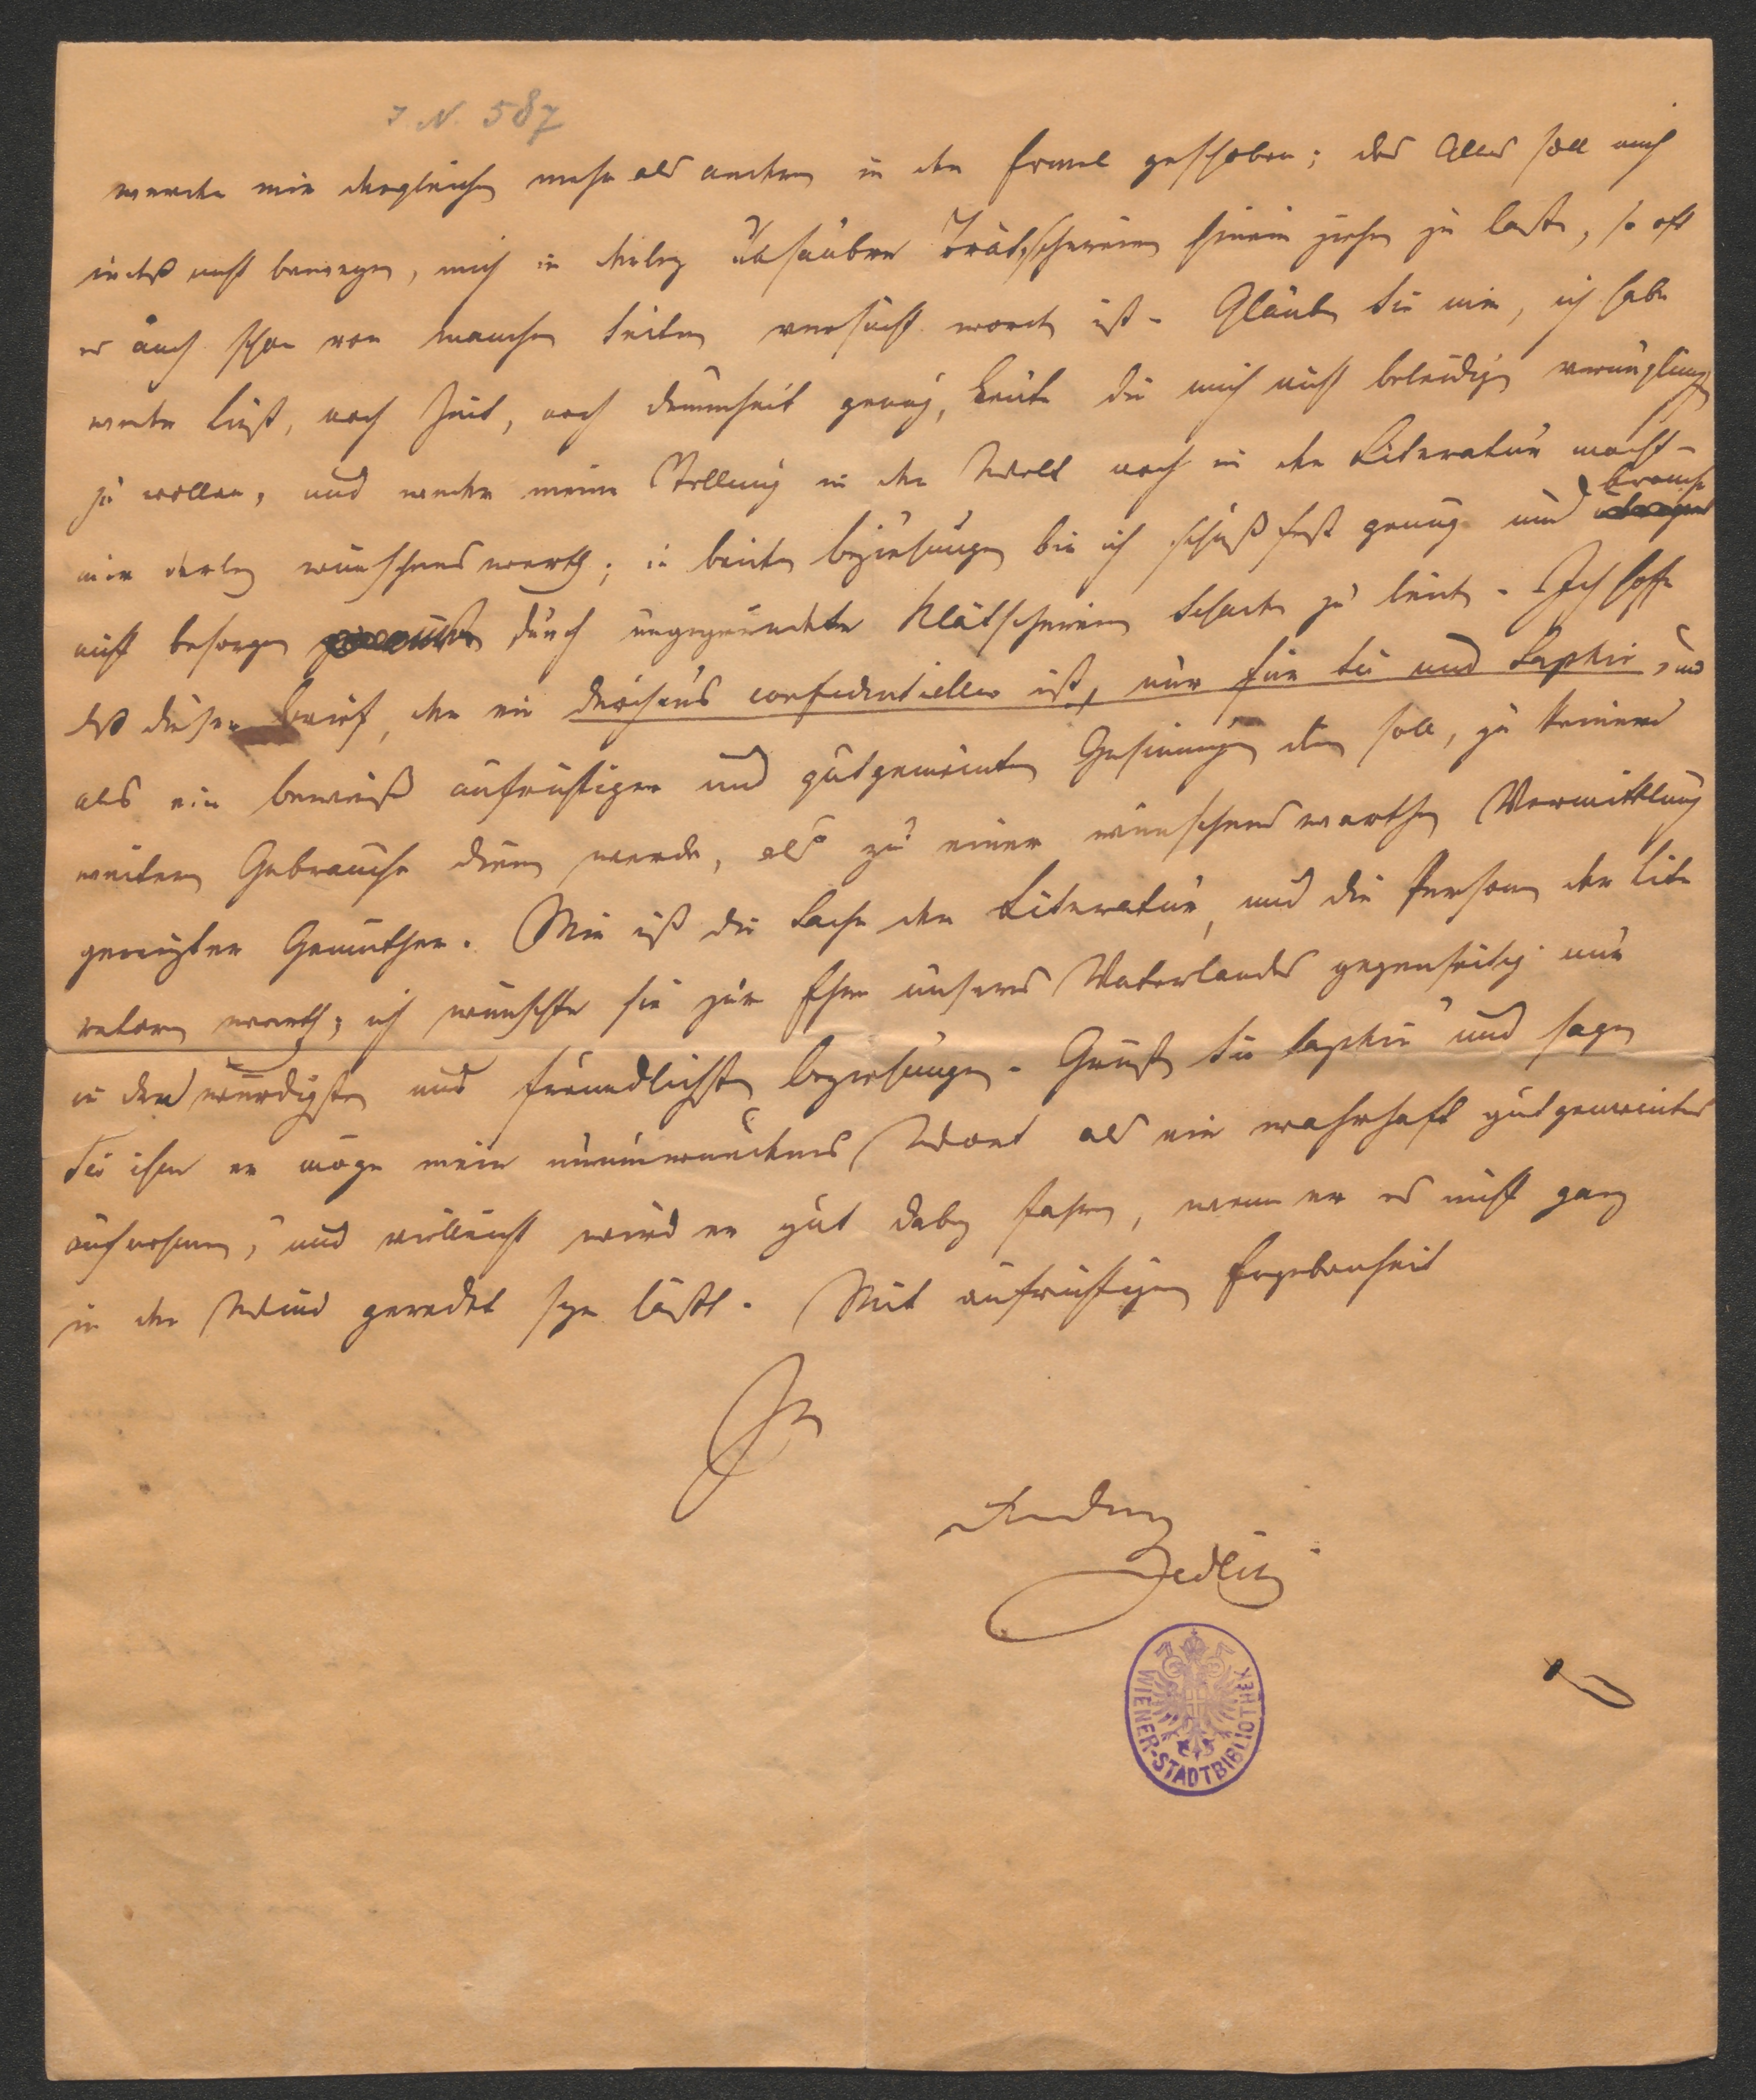 I. N. 587
werden mir dergleichen mehr als andern in den Ermel geschoben; das Alles soll mich
indeß nicht bewegen, mich in derley unsaubere Trätschereien hinein ziehen zu lassen, so oft
es auch schon von manchen Seiten versucht worden ist. Glauben Sie mir, ich habe
weder Lust, noch Zeit, noch Dummheit genug, Leute die mich nicht beleidigen verunglimpfen
zu wollen, und weder meine Stellung in der Welt noch in der Literatur macht
mir derley wünschenswerth; in beiden Beziehungen bin ich schußfest genug und brauche
nicht besorgen durch ungegründete Klatschereien Schaden zu leiden. Ich hoffe
daß dieser Brief, der ein durchaus confidentieller ist, nur für Sie und Saphir, und
als ein Beweiß aufrichtiger und gutgemeinter Gesinnungen dienen soll, zu keinem
weitern Gebrauche dienen werde, als zu einer wünschenswerthen Vermittlung
gereizter Gemüther. Mir ist die Sache der Literatur, und die Person der Lite
ratoren werth; ich wünschte sie zur Ehre unseres Vaterlandes gegenseitig nur
in den würdigsten und freundlichsten Beziehungen. Grüßen Sie Saphir und sagen
Sie ihm er möge mein Wort als ein wahrhaft gutgemeintes
aufnehmen, und vielleicht wird er gut dabey fahren, wenn er es nicht ganz
in den Wind geredet seyn läßt. Mit aufrichtiger Ergebenheit
Ihr
Zedlitz
WIENER-STADTBIBLIOTHEK